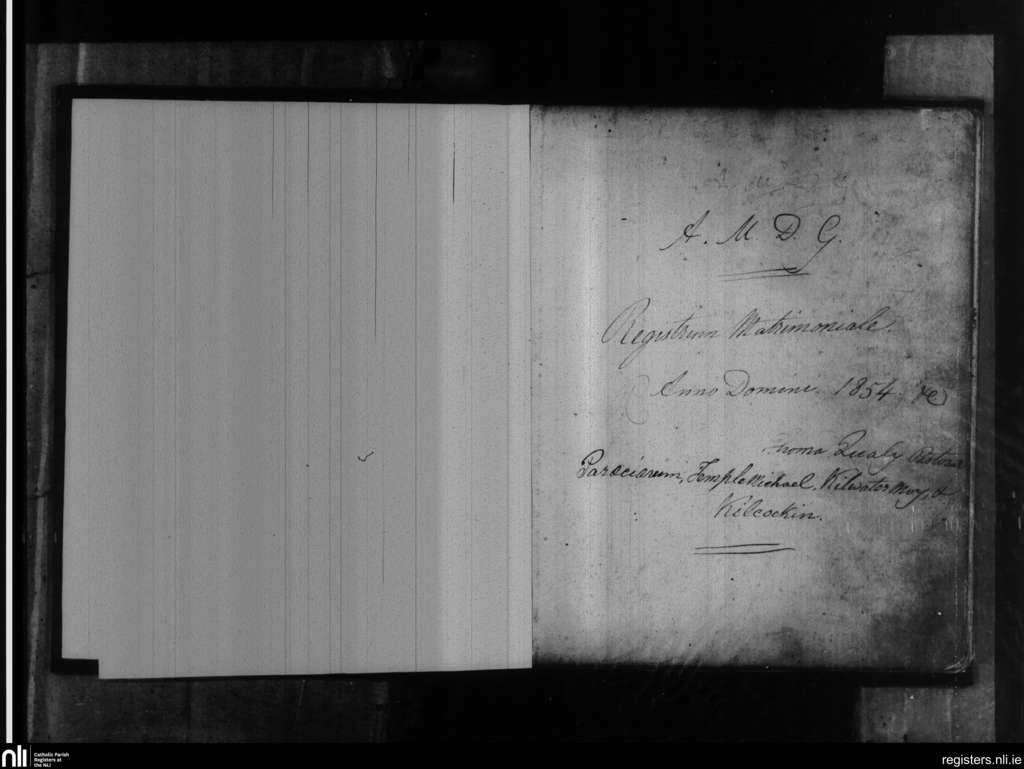 A. M. D. G.
Registrum Matrimoniale.
Anno Domini. 1854. &c
Thoma Qualy Pastore
Paraeciarum, TempleMichael, Kilwater Moy, &
Kilcockin.
nli
Catholic Parish
Registers at
the NLI
registers.nli.ie